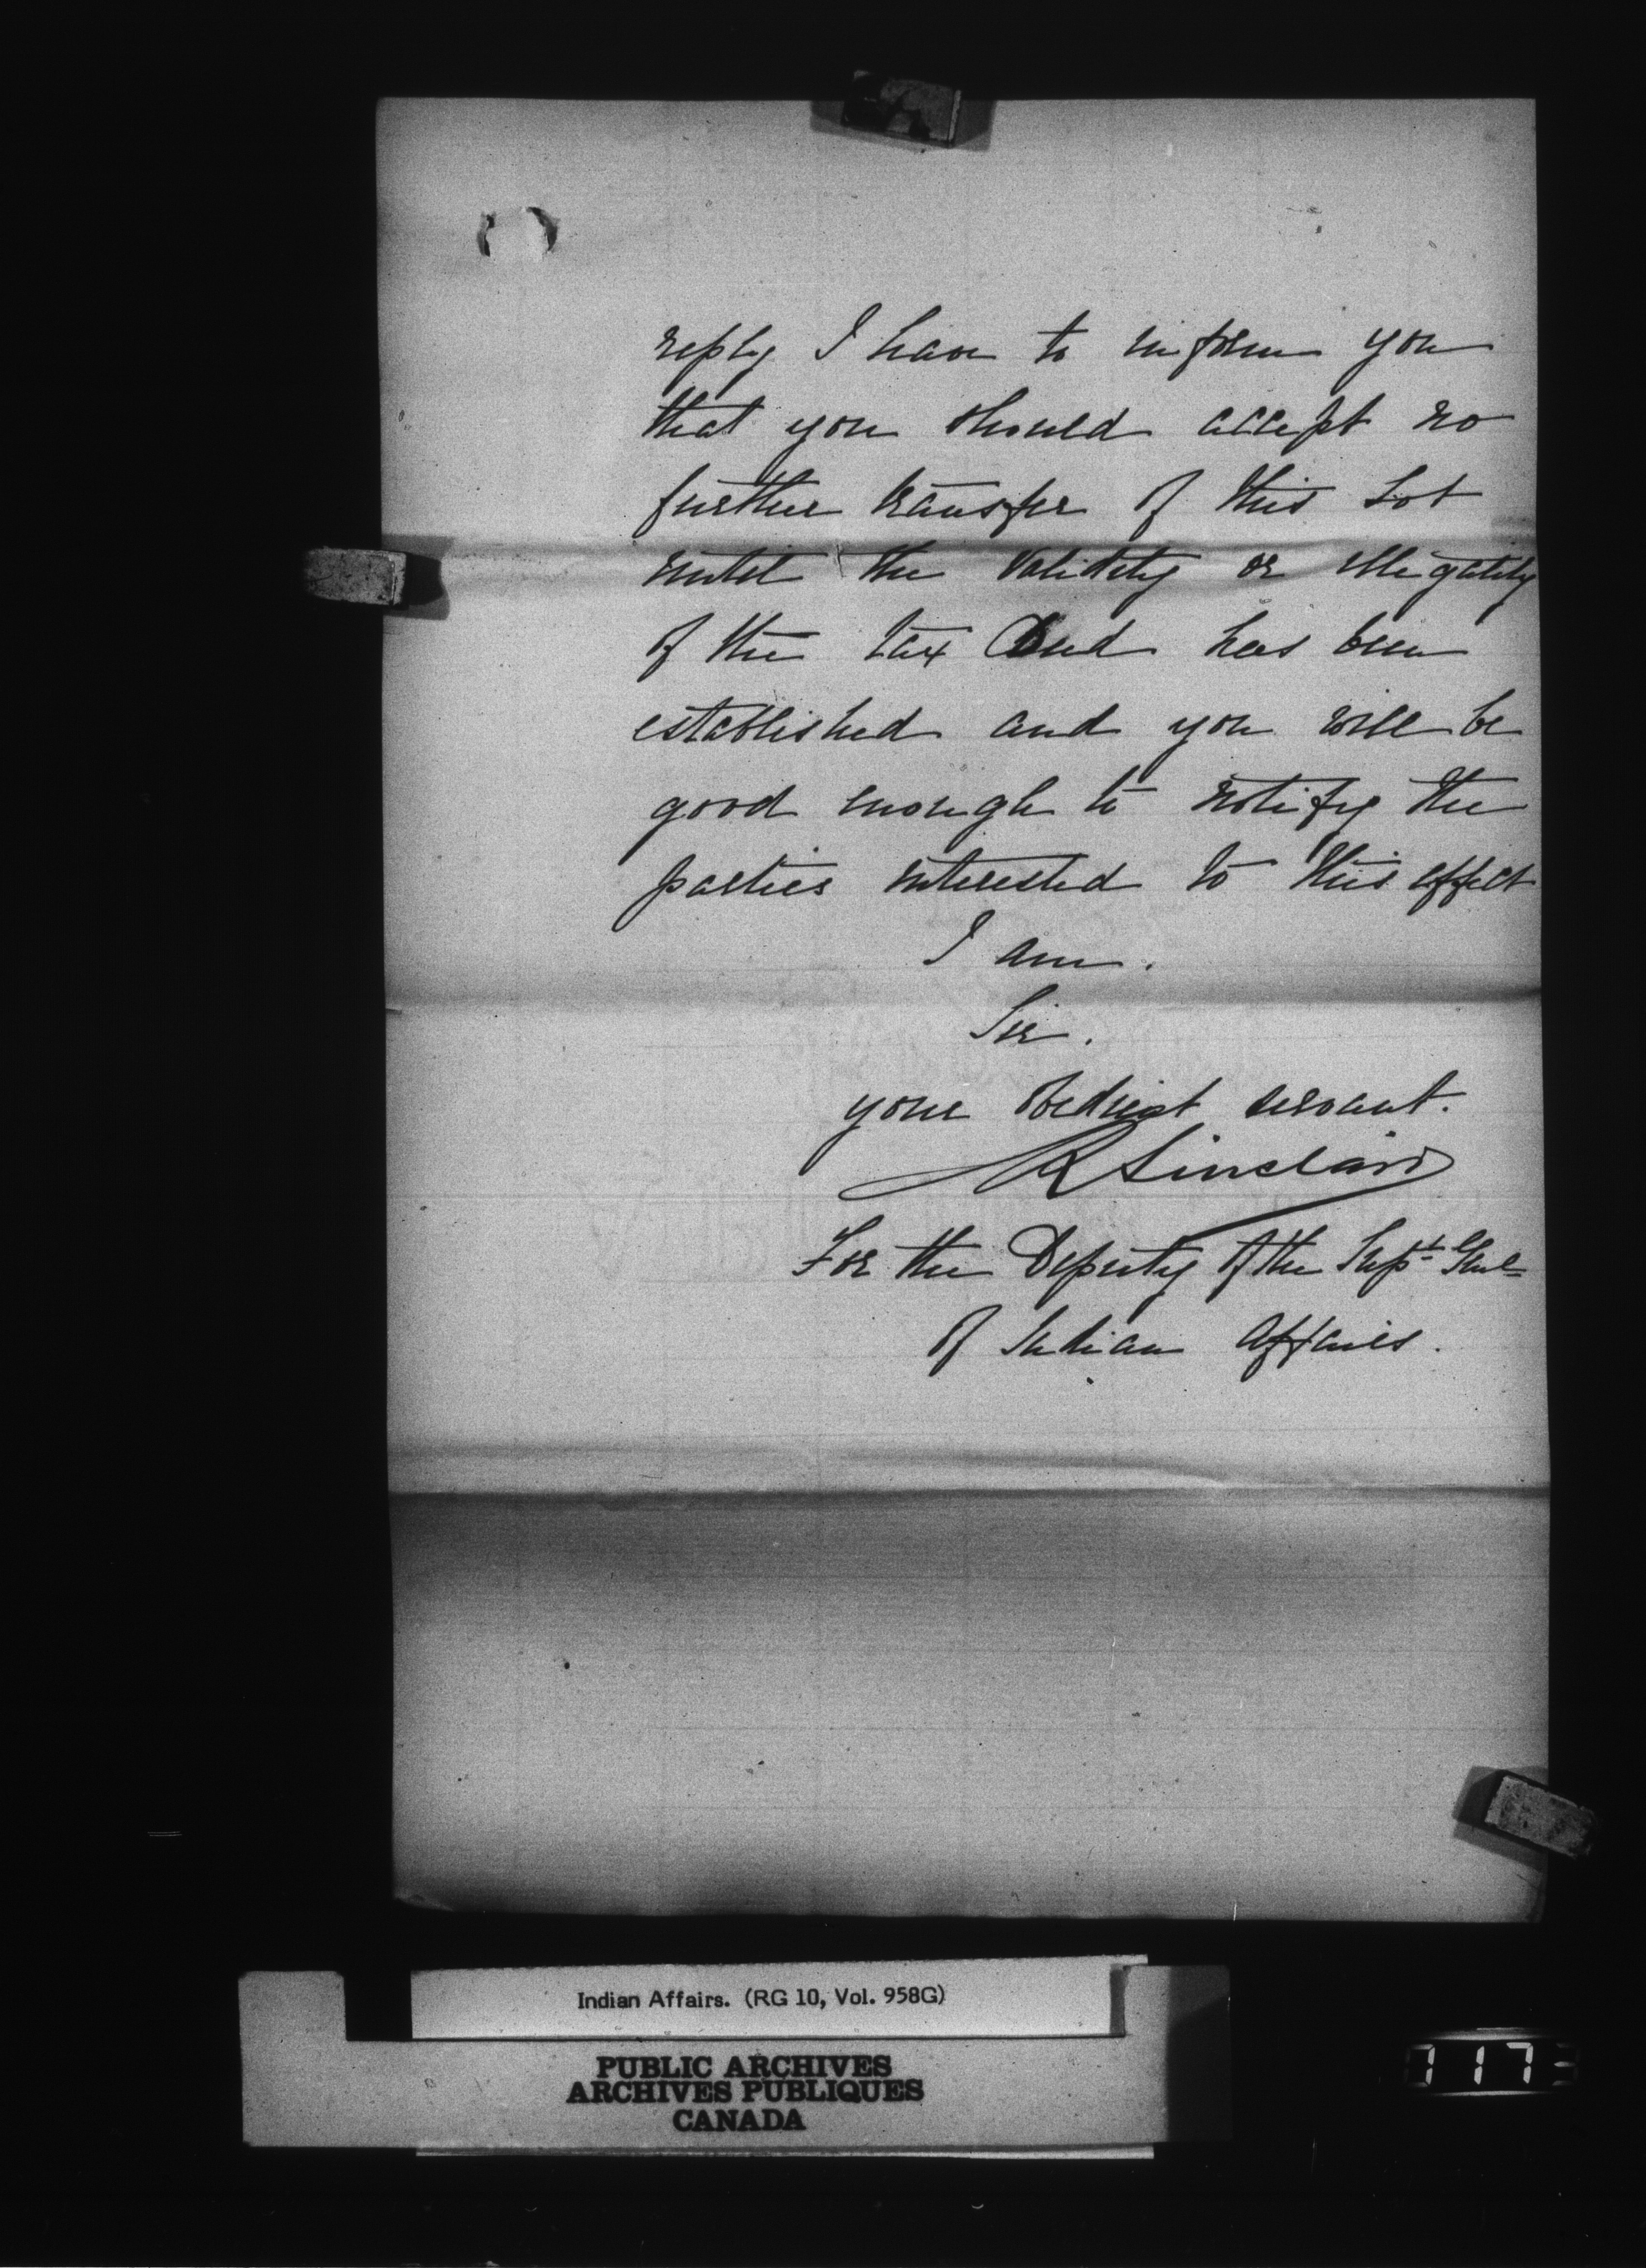 reply I have to inform you
that you should accept no
further transfer of this Lot
until the validity or illegality
of the tax Deed has been
established and you will be
good enough to notify the
parties interested to this effect
I am.
Sir.
your obedient servant.
R Sinclair
For the Deputy of the Supt Genl
of Indian Affairs.
Indian Affairs. (RG 10, Vol. 958G)
PUBLIC ARCHIVES
ARCHIVES PUBLIQUES
CANADA
117